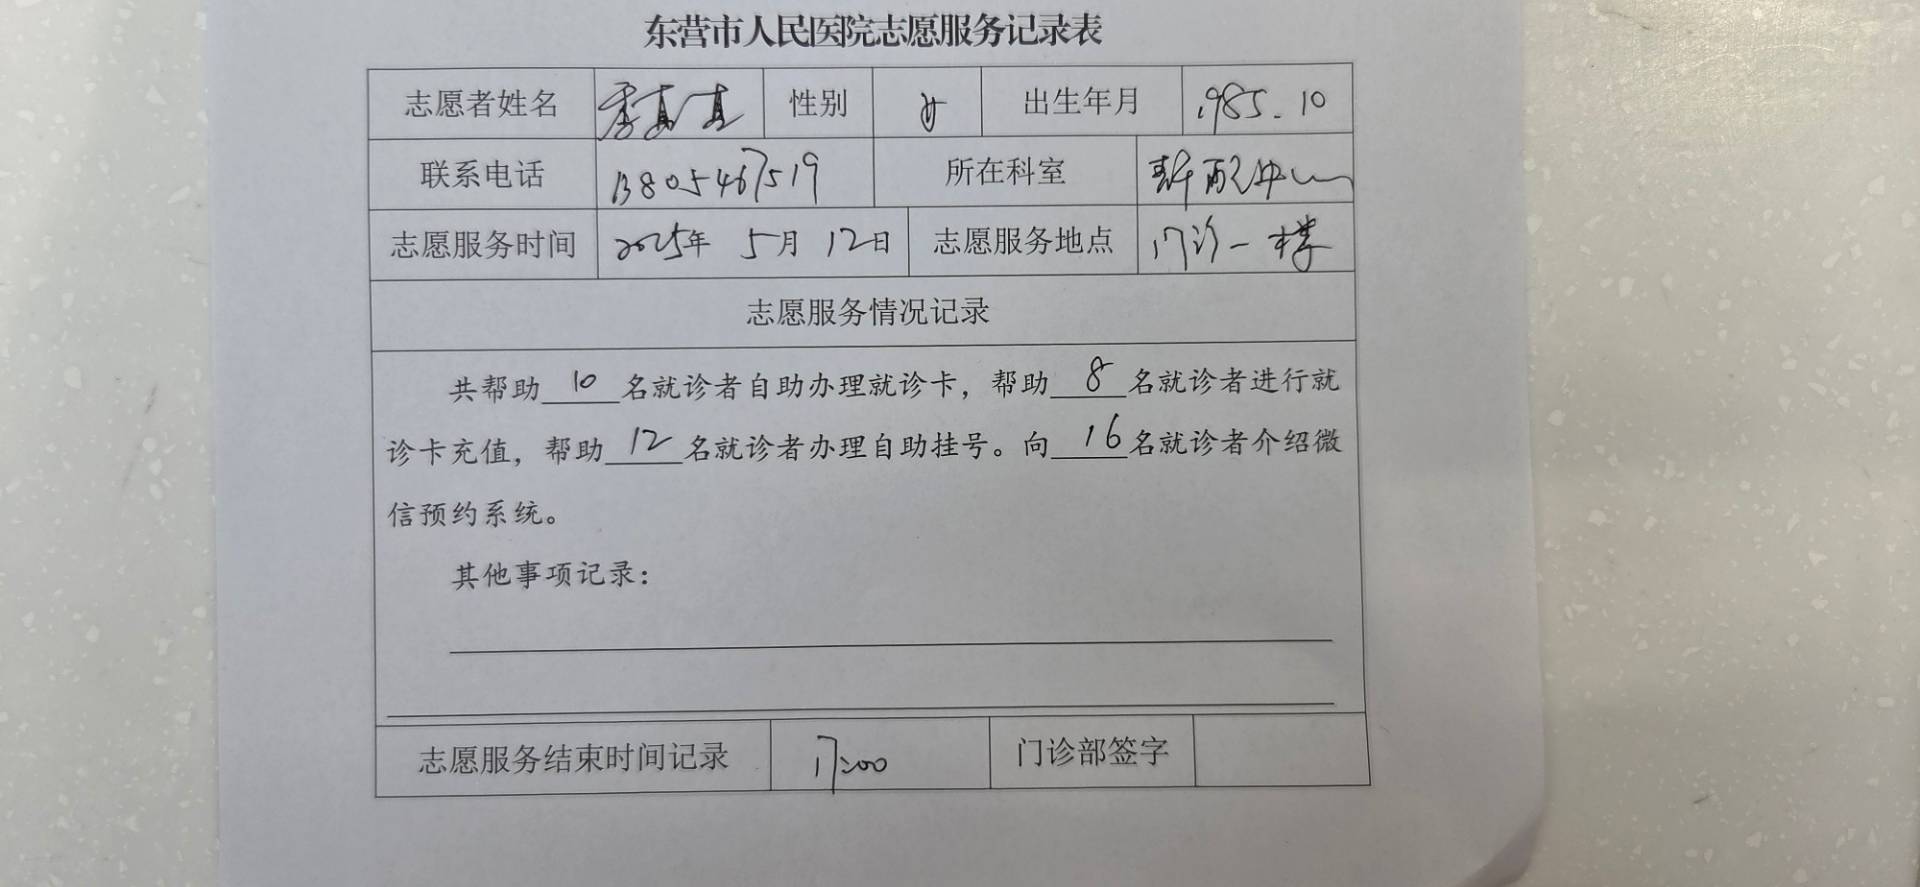 东营市人民医院志愿服务记录表
志愿者姓名 李真真 性别 女 出生年月 1985.10
联系电话 13805467519 所在科室 静配中心
志愿服务时间 2025年 5月 12日 志愿服务地点 门诊一楼
志愿服务情况记录
共帮助 10 名就诊者自助办理就诊卡，帮助 8 名就诊者进行就
诊卡充值，帮助 12 名就诊者办理自助挂号。向 16 名就诊者介绍微
信预约系统。
其他事项记录：
志愿服务结束时间记录 17:00 门诊部签字